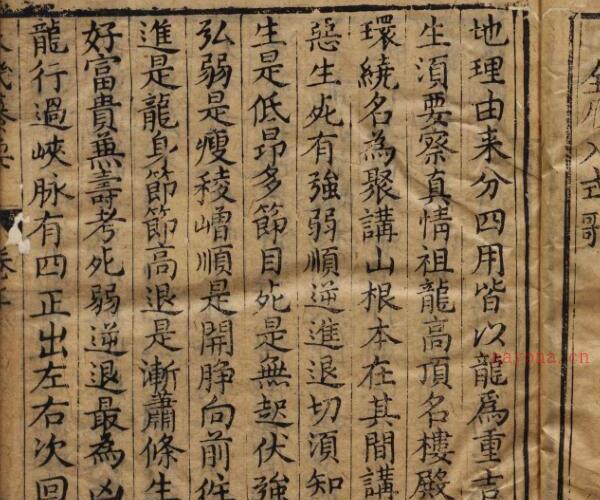 全局入式歌
地理由来分四用皆以龍爲重吉
生湏要察真情祖龍高頂名樓殿
環繞名為聚講山根本在其間講
惡生死有強弱順逆進退切湏知
生是低昻多節目死是無起伏強
弘弱是瘦稜嶒順是開脖向前徃
進是龍身節節高退是漸蕭條生
好富貴兼壽考死弱逆退最為凶
龍行過峽脉有四正出左右次回
nayona.cn